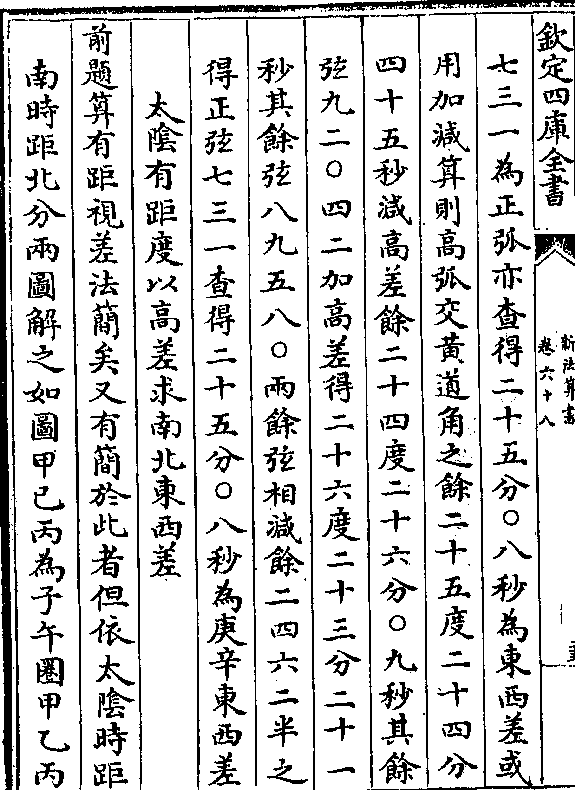 欽定四庫全書
新法算書
卷六十八
七三一為正弧亦查得二十五分〇八秒為東西差或
用加減算則高弧交黄道角之餘二十五度二十四分
四十五秒減高差餘二十四度二十六分〇九秒其餘
弦九二〇四二加高差得二十六度二十三分二十一
秒其餘弦八九五八〇兩餘弦相減餘二四六二半之
得正弦七三一查得二十五分〇八秒為庚辛東西差
太陰有距度以高差求南北東西差
前題算有距視差法簡矣又有簡於此者但依太陰時距
南時距北分兩圖解之如圖甲己丙為子午圈甲乙丙